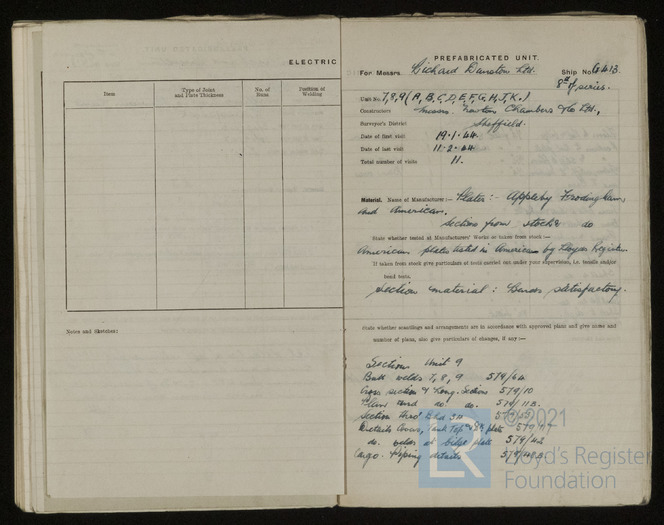 ELECTRIC
Item
Type of Joint and Plate Thickness
No. of Seams
Position of Welding
Notes and Sketches:
PREFABRICATED UNIT.
For Messrs. Richard Dunston Ltd. Ship No.
8th of series.
Unit No. 7, 8, 9 (A, B, C, D, E, F, G, H, J, K.)
Constructors Messrs. Newton Chambers & Co Ltd.,
Surveyor's District Sheffield.
Date of first visit 19.1.44.
Date of last visit 11.2.44
Total number of visits 11.
Material. Name of Manufacturer:— Plates:- Appleby Frodingham,
and American.
Section from stocks do
State whether tested at Manufacturers' Works or taken from stock:—
American plates tested in America by Lloyds Register.
If taken from stock give particulars of tests carried out under your supervision, i.e. tensile and/or
bend tests.
Section material: Bends satisfactory.
State whether scantlings and arrangements are in accordance with approved plans and give names and
number of plans, also give particulars of changes, if any:—
Sections Unit 9
Butt welds 7, 8, 9 579/64
Cross section & Long. Section 579/10
Plan and do. do. 579/113.
Section thro' Bhd 311
Details Covers, Tank Top &
do. welds at bilge plate 579/42
Cargo Piping details
© 2021
Lloyd's Register
Foundation
LR